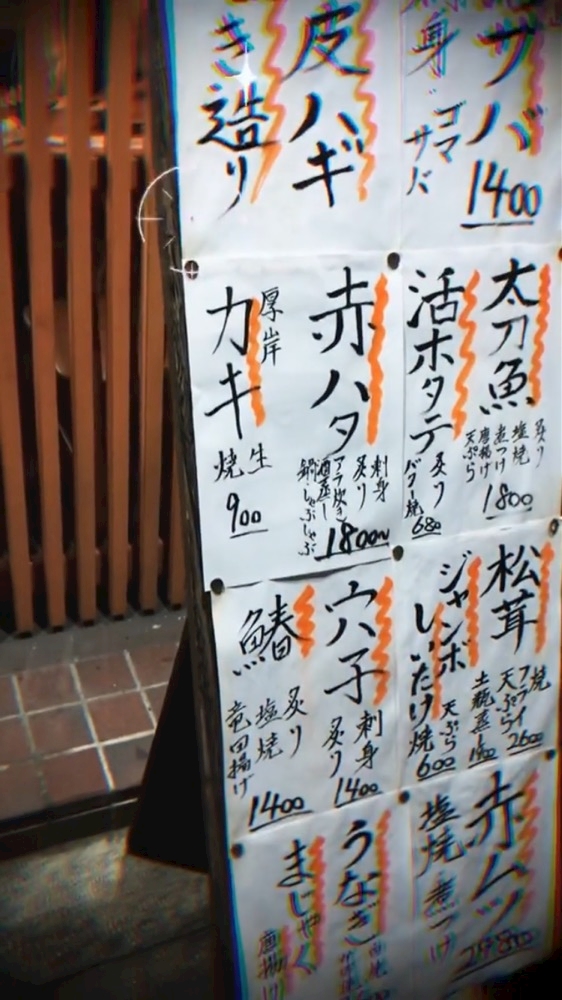 サバ
身 ゴマサバ
1400
皮ハギ
き造り
太刀魚
炙り
塩焼
煮つけ
唐揚げ
天ぷら
1800
活ホタテ
炙り
バター焼
680
赤ハタ
刺身
炙り
アラ炊き
酒蒸し
鍋・しゃぶしゃぶ
1800〜
厚岸
カキ
生
焼
900
松茸
焼
フライ
天ぷら
2600
土瓶蒸し
ジャンボ
しいたけ
天ぷら
焼
600
穴子
刺身
炙り
1400
鰆
炙り
塩焼
竜田揚げ
1400
赤ムツ
塩焼 煮つけ
うなぎ
まじゃく
唐揚げ